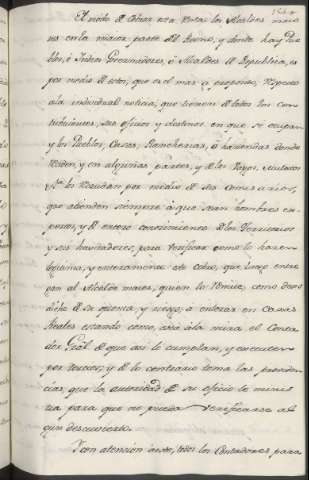 El modo de cobrar esta Renta los Alcaldes mayo
res en la mayor parte del Reino, y donde hay Pue
blos, ó Indios Governadores, ó Alcaldes de Republica, es
por medio de estos, que es el mas á proposito, respecto
ála individual noticia, que tienen de todos los con
tribuientes, sus oficios y destinos en que se ocupan
y los Pueblos, Casas, Rancherias, ó haciendas donde
residen, y en algunas partes, y de los Negros, Mulatos
los recaudan por medio de sus comisarios,
que atienden siempre á que sean hombres ex
pertos, y de entero conocimiento de los Territorios
y sus havitadores, para verificar como lo hacen
legitima, y enteramente este cobro, que luego entre
gan al Alcalde maior, quien lo remite, como dueño
dicho de su quenta, y riesgo, á enterar en Caxas
Reales estando como, está ála mira el Conta
dor Gral de que asi lo cumplan, y executen
por tercios; y de lo contrario toma las providen
cias, que la autoridad de su oficio le minis
tra para que no pueda verificarse al
gun descuvierto.
Y con atencion á esto, todos los Contadores para